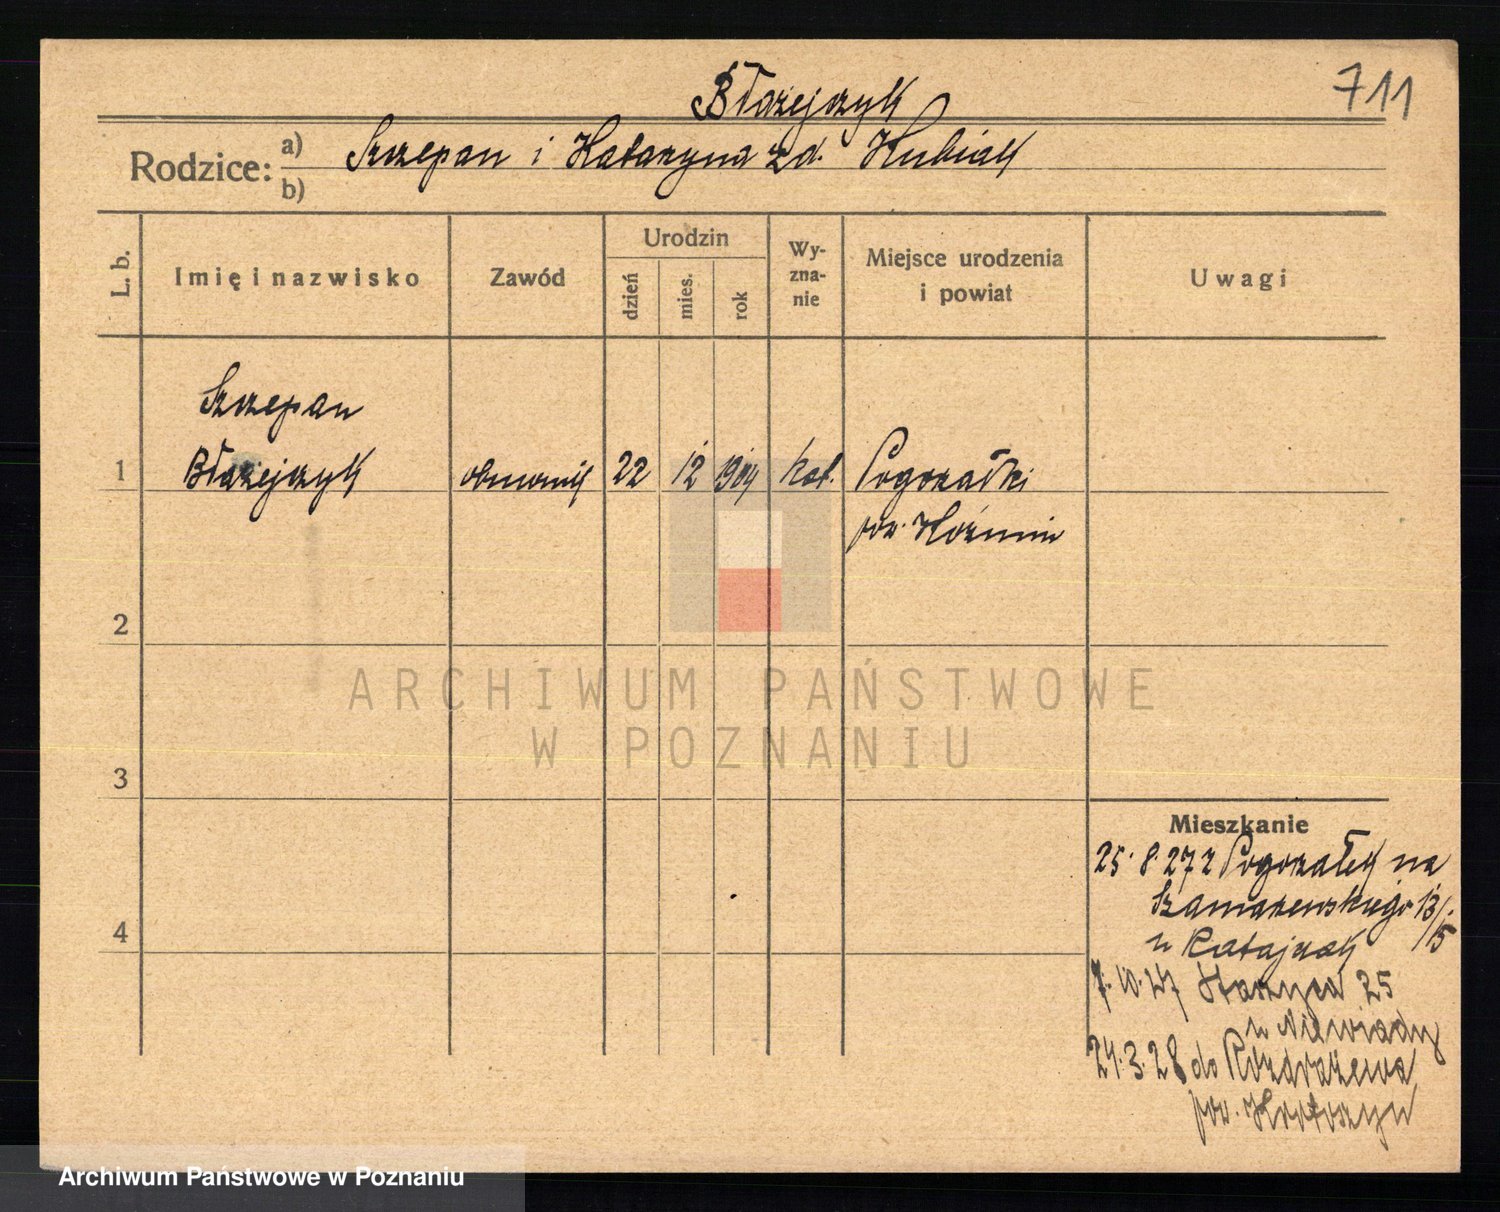 711
Błażejczyk
Rodzice: a) Szczepan i Katarzyna zd. Kubiak
b)
L. b.
Imię i nazwisko
Zawód
Urodzin
dzień
mies.
rok
Wy-
zna-
nie
Miejsce urodzenia
i powiat
Uwagi
Szczepan
1 Błażejczyk 22 12 1904 kat. Pogorzałki
pow. Koźmin
2
3
4
Mieszkanie
25.8.27 z Pogorzałek na
Szamarzewskiego 13/15
u Ratajczak
7.10.27 Staszyca 25
u Niewiady
24.3.28 do Rozdrażewa
pow. Krotoszyn
ARCHIWUM PAŃSTWOWE
W POZNANIU
Archiwum Państwowe w Poznaniu